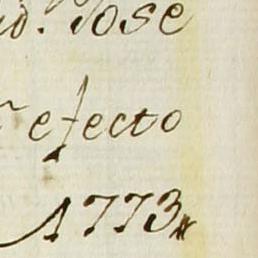 d. Jose
efecto
1773